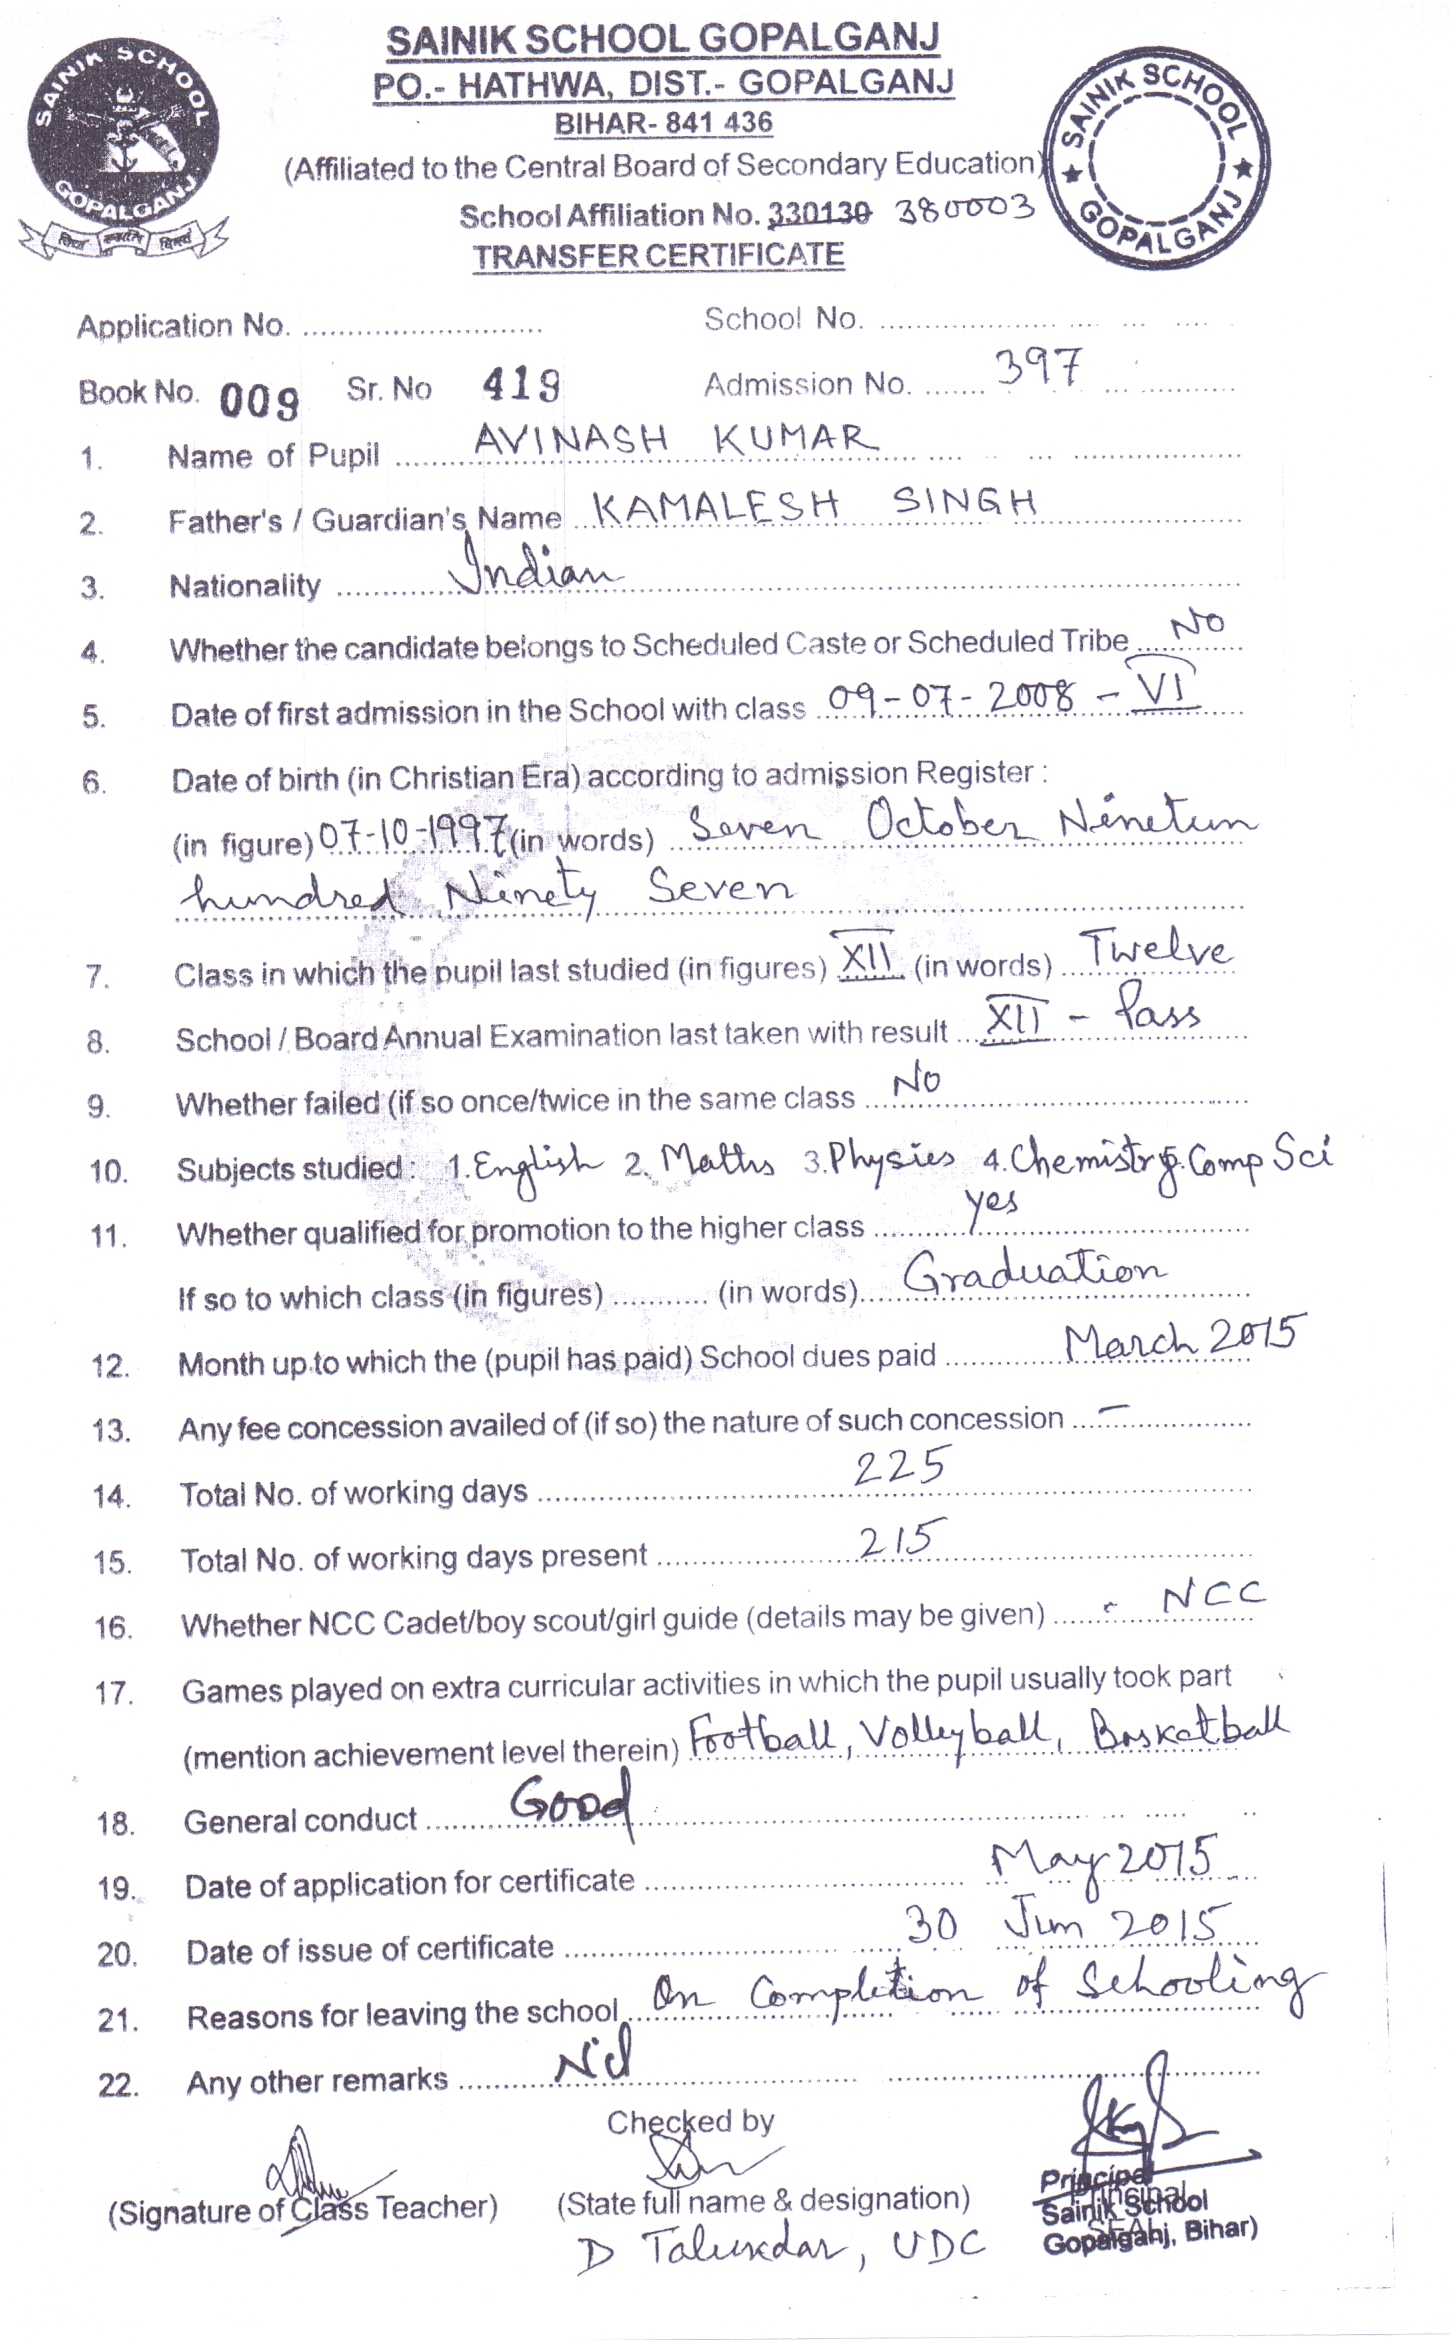 SAINIK SCHOOL GOPALGANJ
SAINIK SCHOOL GOPALGANJ
PO.- HATHWA, DIST.- GOPALGANJ
BIHAR- 841 436
(Affiliated to the Central Board of Secondary Education)
School Affiliation No. 330130 380003
TRANSFER CERTIFICATE
SAINIK SCHOOL ★ GOPALGANJ ★
Application No. .......................... School No. ..........................
Book No. 009 Sr. No 419 Admission No. ....... 397
1. Name of Pupil AVINASH KUMAR
2. Father's / Guardian's Name KAMALESH SINGH
3. Nationality Indian
4. Whether the candidate belongs to Scheduled Caste or Scheduled Tribe NO
5. Date of first admission in the School with class 09-07-2008 - VI
6. Date of birth (in Christian Era) according to admission Register :
(in figure) 07-10-1997 (in words) Seven October Nineteen
hundred Ninety Seven
7. Class in which the pupil last studied (in figures) XII (in words) Twelve
8. School / Board Annual Examination last taken with result XII - Pass
9. Whether failed (if so once/twice in the same class No
10. Subjects studied : 1. English 2. Maths 3. Physics 4. Chemistry 5. Comp Sci
11. Whether qualified for promotion to the higher class yes
If so to which class (in figures) ........... (in words) Graduation
12. Month up to which the (pupil has paid) School dues paid March 2015
13. Any fee concession availed of (if so) the nature of such concession –
14. Total No. of working days 225
15. Total No. of working days present 215
16. Whether NCC Cadet/boy scout/girl guide (details may be given) - NCC
17. Games played on extra curricular activities in which the pupil usually took part
(mention achievement level therein) Football, Volleyball, Basketball
18. General conduct Good
19. Date of application for certificate May 2015
20. Date of issue of certificate 30 Jun 2015
21. Reasons for leaving the school On Completion of Schooling
22. Any other remarks Nil
Checked by
(Signature of Class Teacher) (State full name & designation) Principal
D Talukdar, UDC Sainik School
Gopalganj, Bihar)